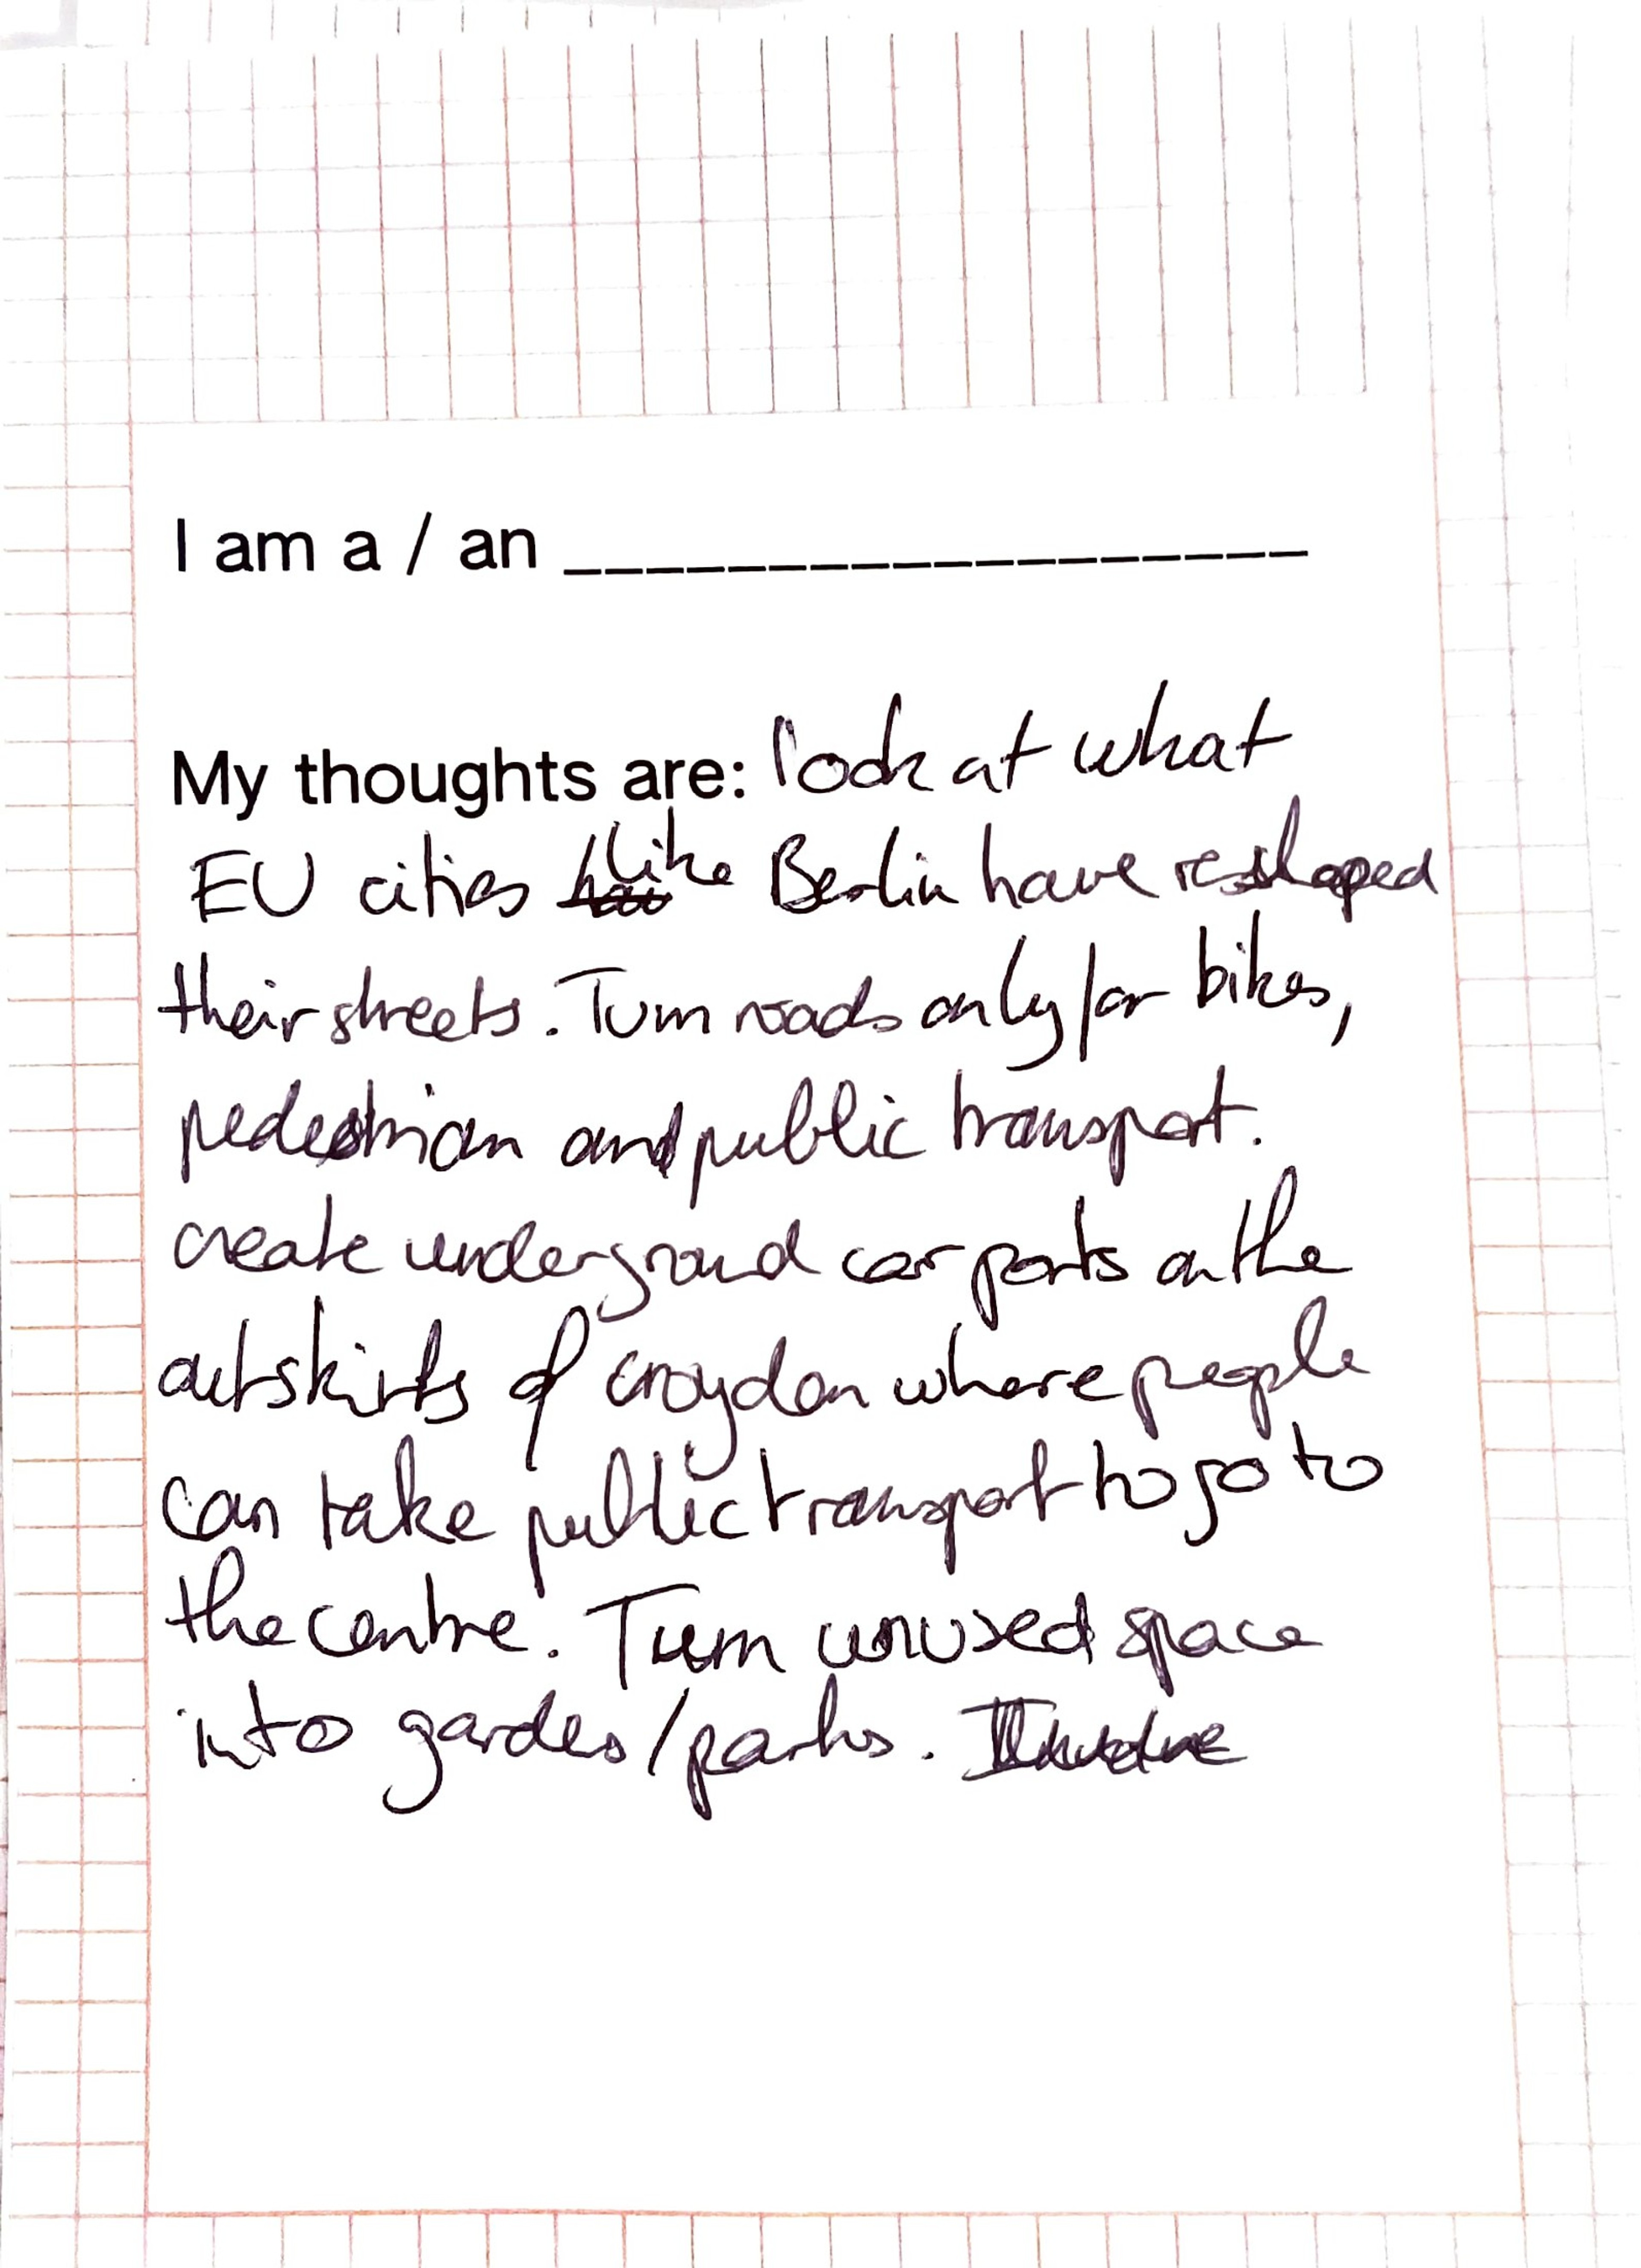 I am a / an __________________
My thoughts are: look at what
EU cities like Berlin have reshaped
their streets. Turn roads only for bikes,
pedestrian and public transport.
create underground car ports on the
outskirts of croydon where people
can take public transport to go to
the centre. Turn unused space
into gardes/parks.